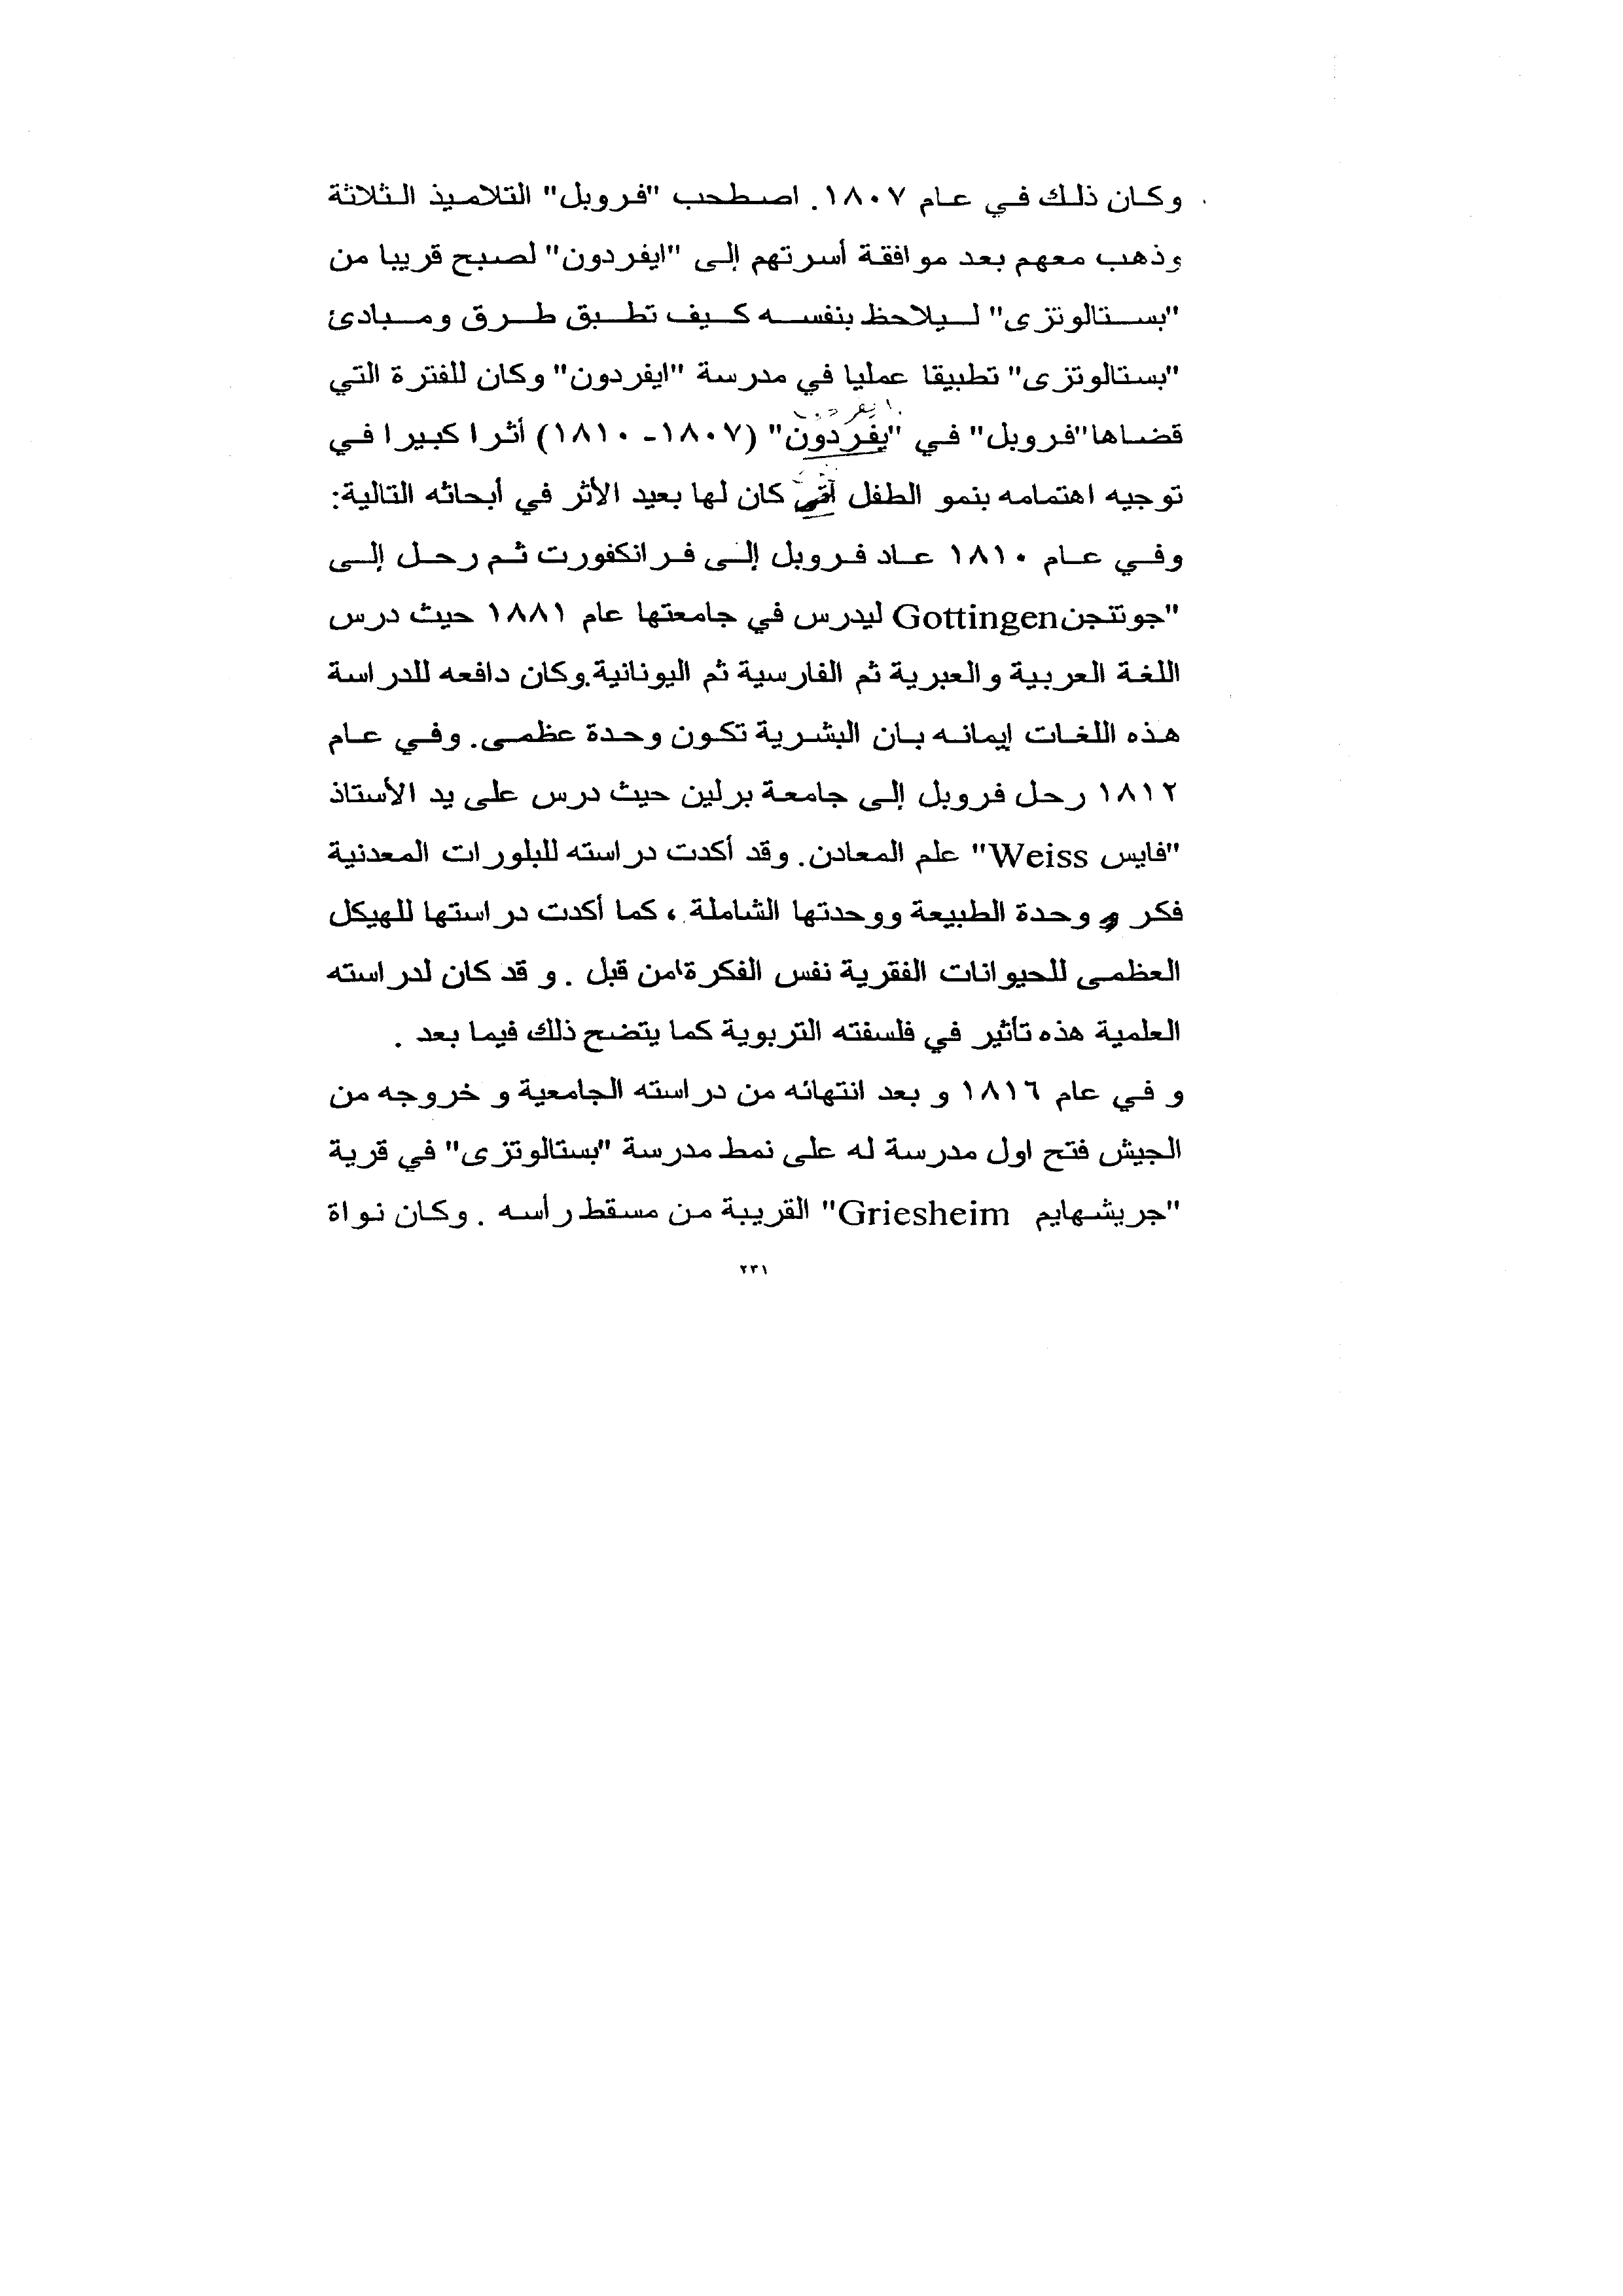 وكان ذلك في عام ١٨٠٧. اصطحب "فروبل" التلاميذ الثلاثة
وذهب معهم بعد موافقة أسرتهم إلى "ايفردون" لصبح قريبا من
"بستالوتزى" ليلاحظ بنفسه كيف تطبق طرق ومبادئ
"بستالوتزى" تطبيقا عمليا في مدرسة "ايفردون" وكان للفترة التي
ايفردون
قضاها"فروبل" في "يفردون" (١٨٠٧- ١٨١٠) أثرا كبيرا في
توجيه اهتمامه بنمو الطفل كان لها بعيد الأثر في أبحاثه التالية:
وفي عام ١٨١٠ عاد فروبل إلى فرانكفورت ثم رحل إلى
"جوتتجنGottingen ليدرس في جامعتها عام ١٨٨١ حيث درس
اللغة العربية والعبرية ثم الفارسية ثم اليونانية.وكان دافعه للدراسة
هذه اللغات إيمانه بان البشرية تكون وحدة عظمى. وفي عام
١٨١٢ رحل فروبل إلى جامعة برلين حيث درس على يد الأستاذ
"فايس Weiss" علم المعادن. وقد أكدت دراسته للبلورات المعدنية
فكر و وحدة الطبيعة ووحدتها الشاملة ، كما أكدت دراستها للهيكل
العظمى للحيوانات الفقرية نفس الفكرة من قبل . و قد كان لدراسته
العلمية هذه تأثير في فلسفته التربوية كما يتضح ذلك فيما بعد .
و في عام ١٨١٦ و بعد انتهائه من دراسته الجامعية و خروجه من
الجيش فتح اول مدرسة له على نمط مدرسة "بستالوتزى" في قرية
"جريشهايم Griesheim" القريبة من مسقط رأسه . وكان نواة
٢٣١